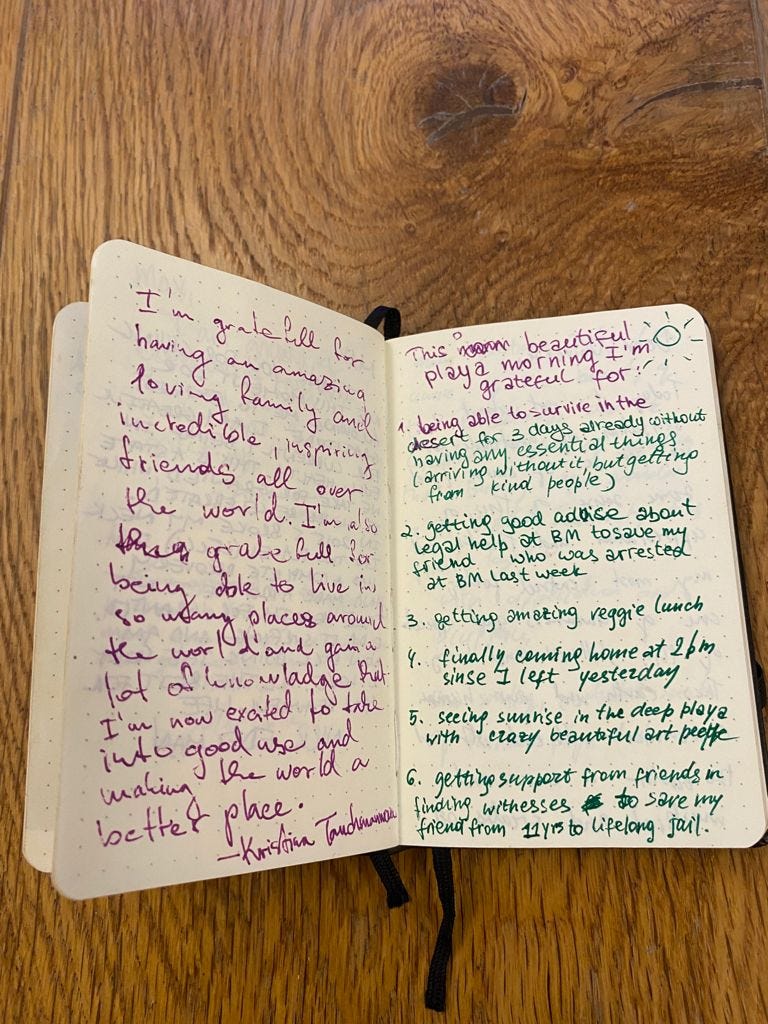 I'm gratefull for
having an amazing
loving family and
incredible, inspiring
friends all over
the world. I'm also
gratefull for
being able to live in
so many places around
the world and gain a
lot of knowladge that
I'm now excited to take
into good use and
making the world a
better place.
—Kristian
This beautiful
playa morning I'm
grateful for:
1. being able to survive in the
desert for 3 days already without
having any essential things
(arriving without it, but getting
from kind people)
2. getting good advise about
legal help at BM to save my
friend who was arrested
at BM last week
3. getting amazing veggie lunch
4. finally coming home at 2pm
sinse I left yesterday
5. seeing sunrise in the deep playa
with crazy beautiful art
6. getting support from friends in
finding withesses to save my
friend from 11yrs to lifelong jail.